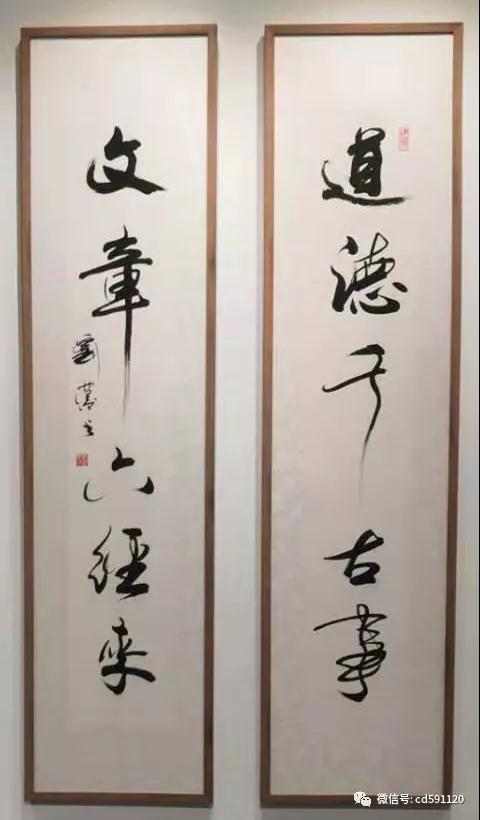 道德千古事
文章六經來
劉 书
微信号: cd591120